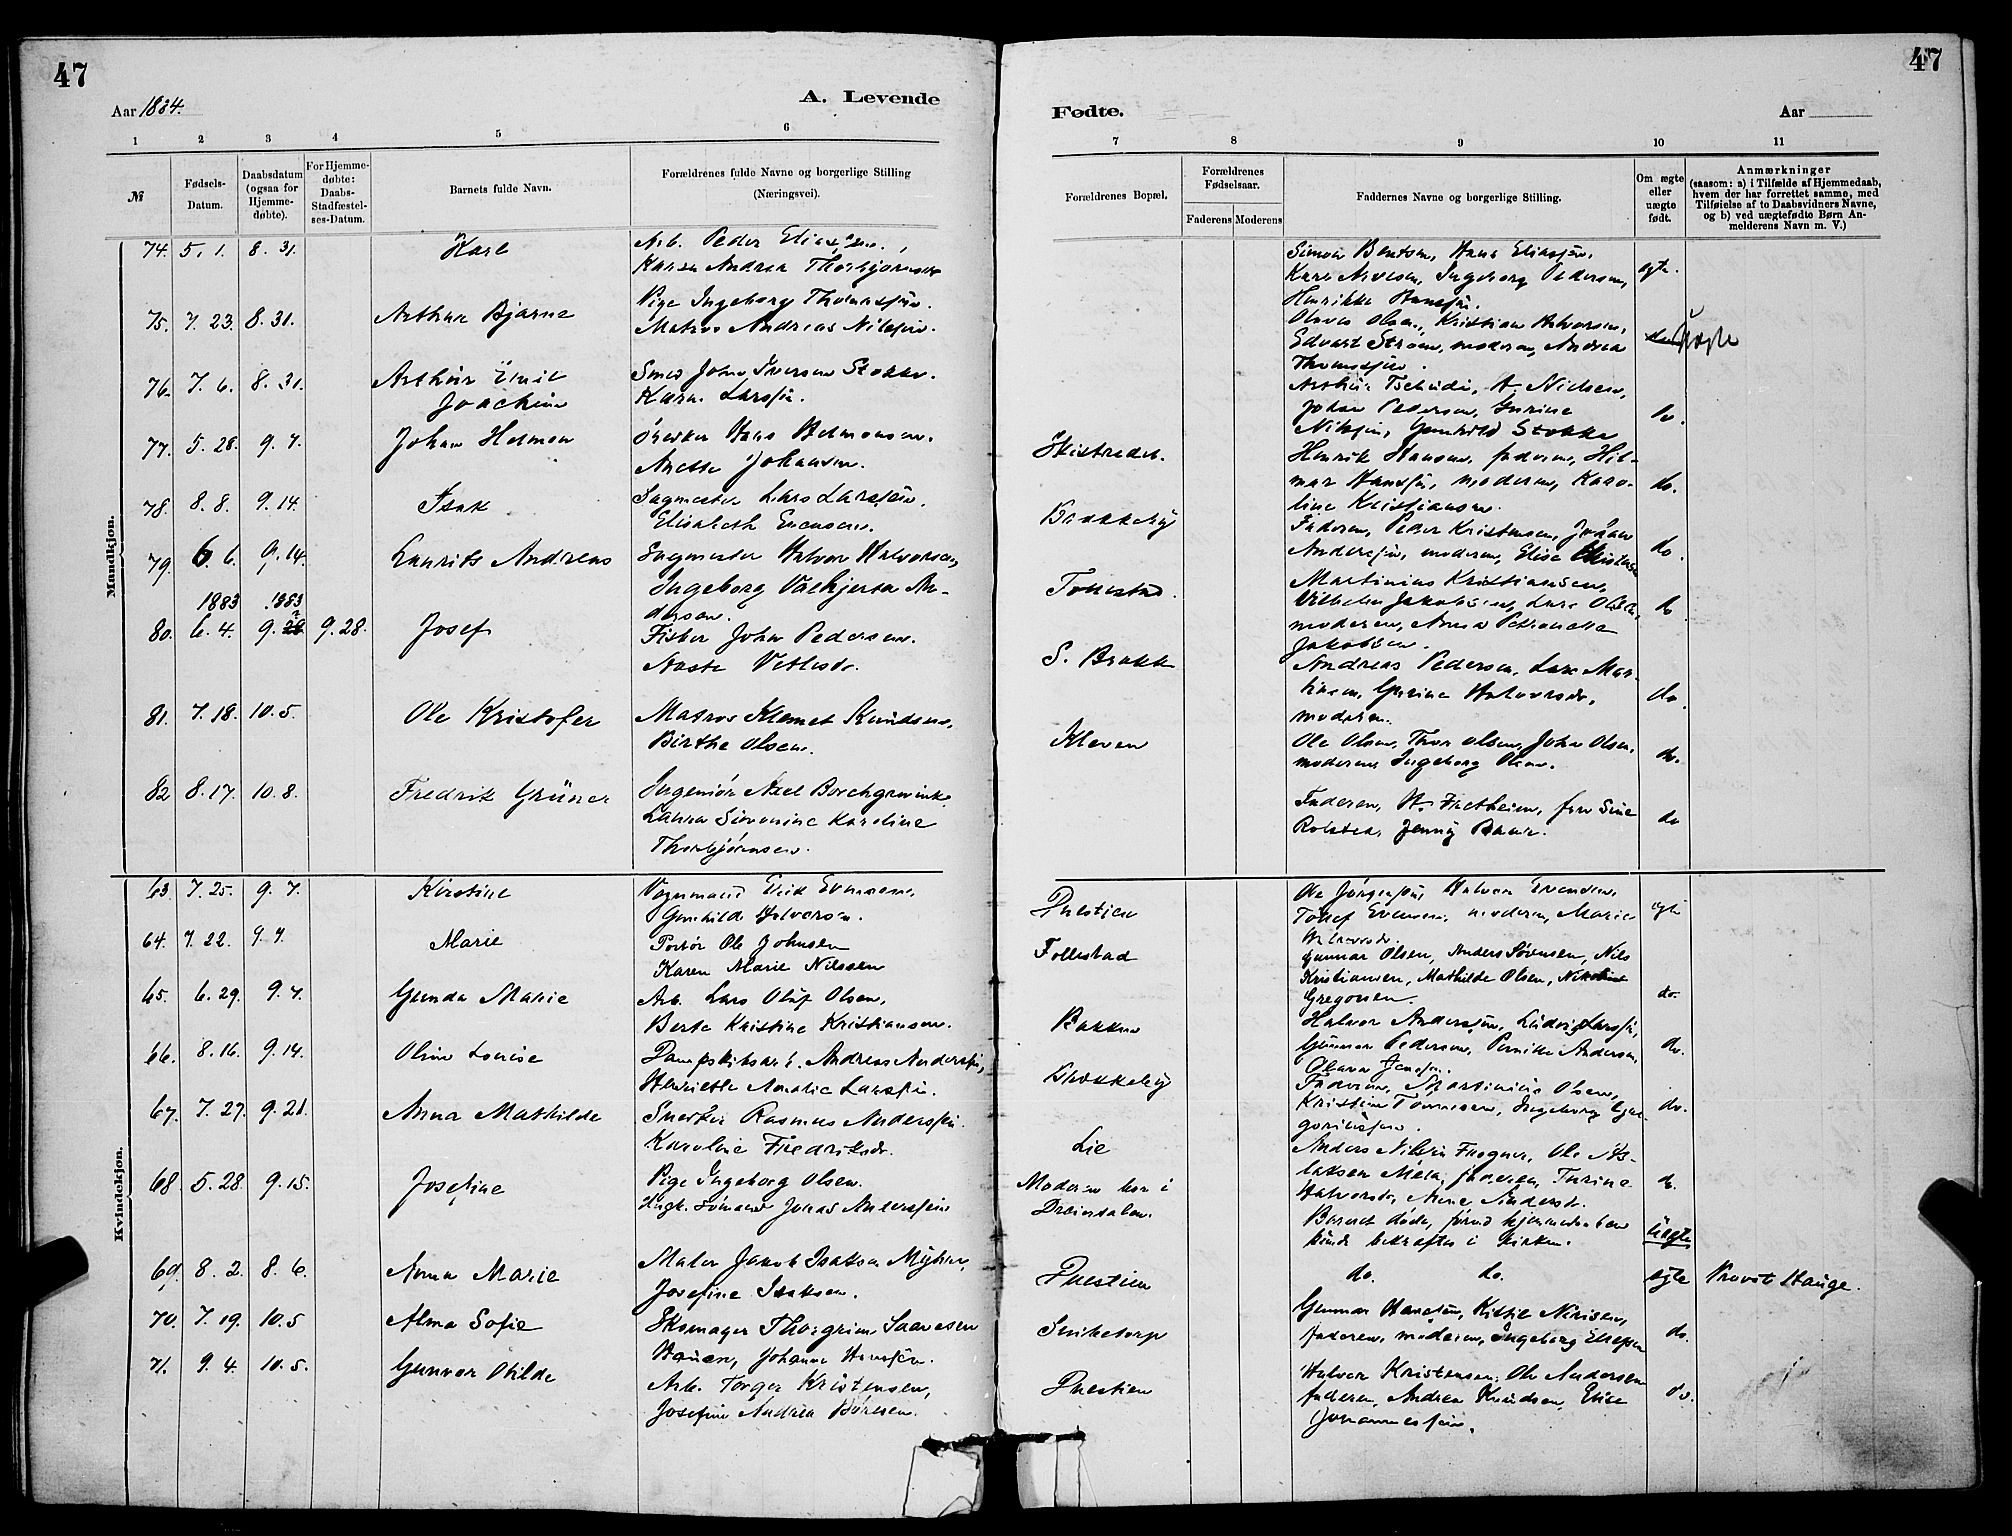 47
Aar 1884.
A. Levende
1 2 3 4 5 6
№
Fødsels-Datum.
Daabsdatum (ogsaa for Hjemmedøbte).
For Hjemmedøbte: Daabs-Stadfæstelses-Datum.
Barnets fulde Navn.
Forældrenes fulde Navne og borgerlige Stilling (Næringsvei).
Mandkjøn.
74. 5. 1. 8. 31. Karl Arb. Peder Eliassen,
Karen Andrea Thorbjørnsen
75. 7. 23. 8. 31. Arthur Bjarne Pige Ingeborg Thomassen.
Matros Andreas Nilssen.
76. 7. 6. 8. 31. Arthur Emil Smed John Iversen Stokke.
Joachim Karen Larssen.
77. 5. 28. 9. 7. Johan Helmer Snedker Hans Helmersen.
Anette Johansen.
78. 8. 8. 9. 14. Isak Sagmester Lars Larssen,
Elisabeth
79. 6. 6. 9. 14. Laurits Andreas Sagmester Halvor Halvorsen,
Ingeborg Valhjerta An-
dersen.
1883 1883
80. 6. 4. 9. 9. 28. Josef Fisker John Pedersen.
Aaste Vetlesdr.
81. 7. 18. 10. 5. Ole Kristofer Matros Klemet Knudsen,
Birthe Olsen.
82 8. 17. 10. 8. Fredrik Grüner Ingeniør Axel Borchgrevink
Laura Severine Karoline
Thorbjørnsen.
Kvindekjøn.
63. 7. 25. 9. 7. Kirstine Vognmand Erik Evensen,
Gunhild Halvorsen.
64. 7. 22. 9. 7. Marie Portør Ole Johnsen
Karen Marie Nilssen
65. 6. 29. 9. 7. Gunda Marie Arb. Lars Oluf Olsen,
Berte Kristine Kristiansen.
66. 8. 16. 9. 14. Oline Lovise Andreas Anderssen,
Henriette Amalie Larssen.
67. 7. 27. 9. 21. Anna Mathilde Snedker Rasmus Anderssen
Karoline Fredriksdr.
68 5. 28. 9. 15. Josefine Pige Ingeborg Olsen.
Ungk. Sømand Jonas Anderssen
69. 8. 2. 8. 6. Anna Marie Maler Jakob Isaksen Myhre,
Josefine Isaksen.
70. 7. 19. 10. 5 Alma Sofie Skomager Thorgrim Saavesen
Hauen, Johanne Hanssen.
71. 9. 4. 10. 5. Gunvor Otilde Arb. Torger Kristensen,
Josefine Andrea Børesen.
47
Fødte.
Aar
7 8 9 10 11
Forældrenes Bopæl.
Forældrenes Fødselsaar.
Faderens Moderens
Faddernes Navne og borgerlige Stilling.
Om ægte eller uægte født.
Anmærkninger
(saasom: a) i Tilfælde af Hjemmedaab, hvem der har forrettet samme, med Tilføielse af to Daabsvidners Navne, og b) ved uægtefødte Børn Anmelderens Navn m. V.)
Simon Bentsen, Hans Eliassen,
Karen Ingeborg Pedersen, egte.
Henrikke Hanssen.
Olaves Olsen, Kristian Halvorsen,
Edvart Strøm, moderen, Andrea uegte
Thomassen.
Arthur Tschudi, A. Nielsen,
Johan Pedersen, Gurine do.
Nilssen, Gunhild Stokke
Henrik Hansen, faderen, Hil-
mar Hanssen, moderen, Karo- do.
line Kristiansen.
Brekkeby Faderen, Peder Kristensen, Johan
Anderssen, moderen, Elise do.
Follestad Martinius Kristiansen,
Vilhelm Jakobsen, Lars
moderen, Anna Petronelle
Jakobsen.
S. Brekk Andreas Pedersen, Lars Mar-
tinsen, Gurine Halvorsdr. do.
moderen.
Kleven Ole Olsen, Thor Olsen, John Olsen,
moderen, Ingeborg Olsen. do.
Faderen, fru
Jenny do
Prestien Ole Jørgenssen, Halvor Evensen,
Evensen, moderen, Marie egte
Halvorsdr.
Follestad Gunnar Olsen, Anders Sørensen, Nils
Kristiansen, Mathilde Olsen, Nikoline
Gregorsen. do.
Bakken Halvor Anderssen, Ludvig Larssen,
Gunnar Pedersen, Pernille Andersen, do.
Olava Jenssen.
Brekkeby Faderen, Martinius Olsen,
Kristian Tønnesen, Ingeborg Gre- do.
goriussen.
Lie Anders Nilsen Frogner, Ole As-
laksen Mæla, faderen, Turine do.
Halvorsdr, Anne Andersdr.
Moderen bor i Barnet døde, førend hjemmedaaben
Drangedalen. kunde bekræftes i kirken. uegte
Prestien do. do. egte Provst Hauge.
Snibetorp Gunnar Hanssen, Kittil Nirisen,
faderen, moderen, Ingeborg do.
Prestien Halvor Kristensen, Ole Andersen
faderen, Andrea Knudsen, Elise do.
Johannessen.